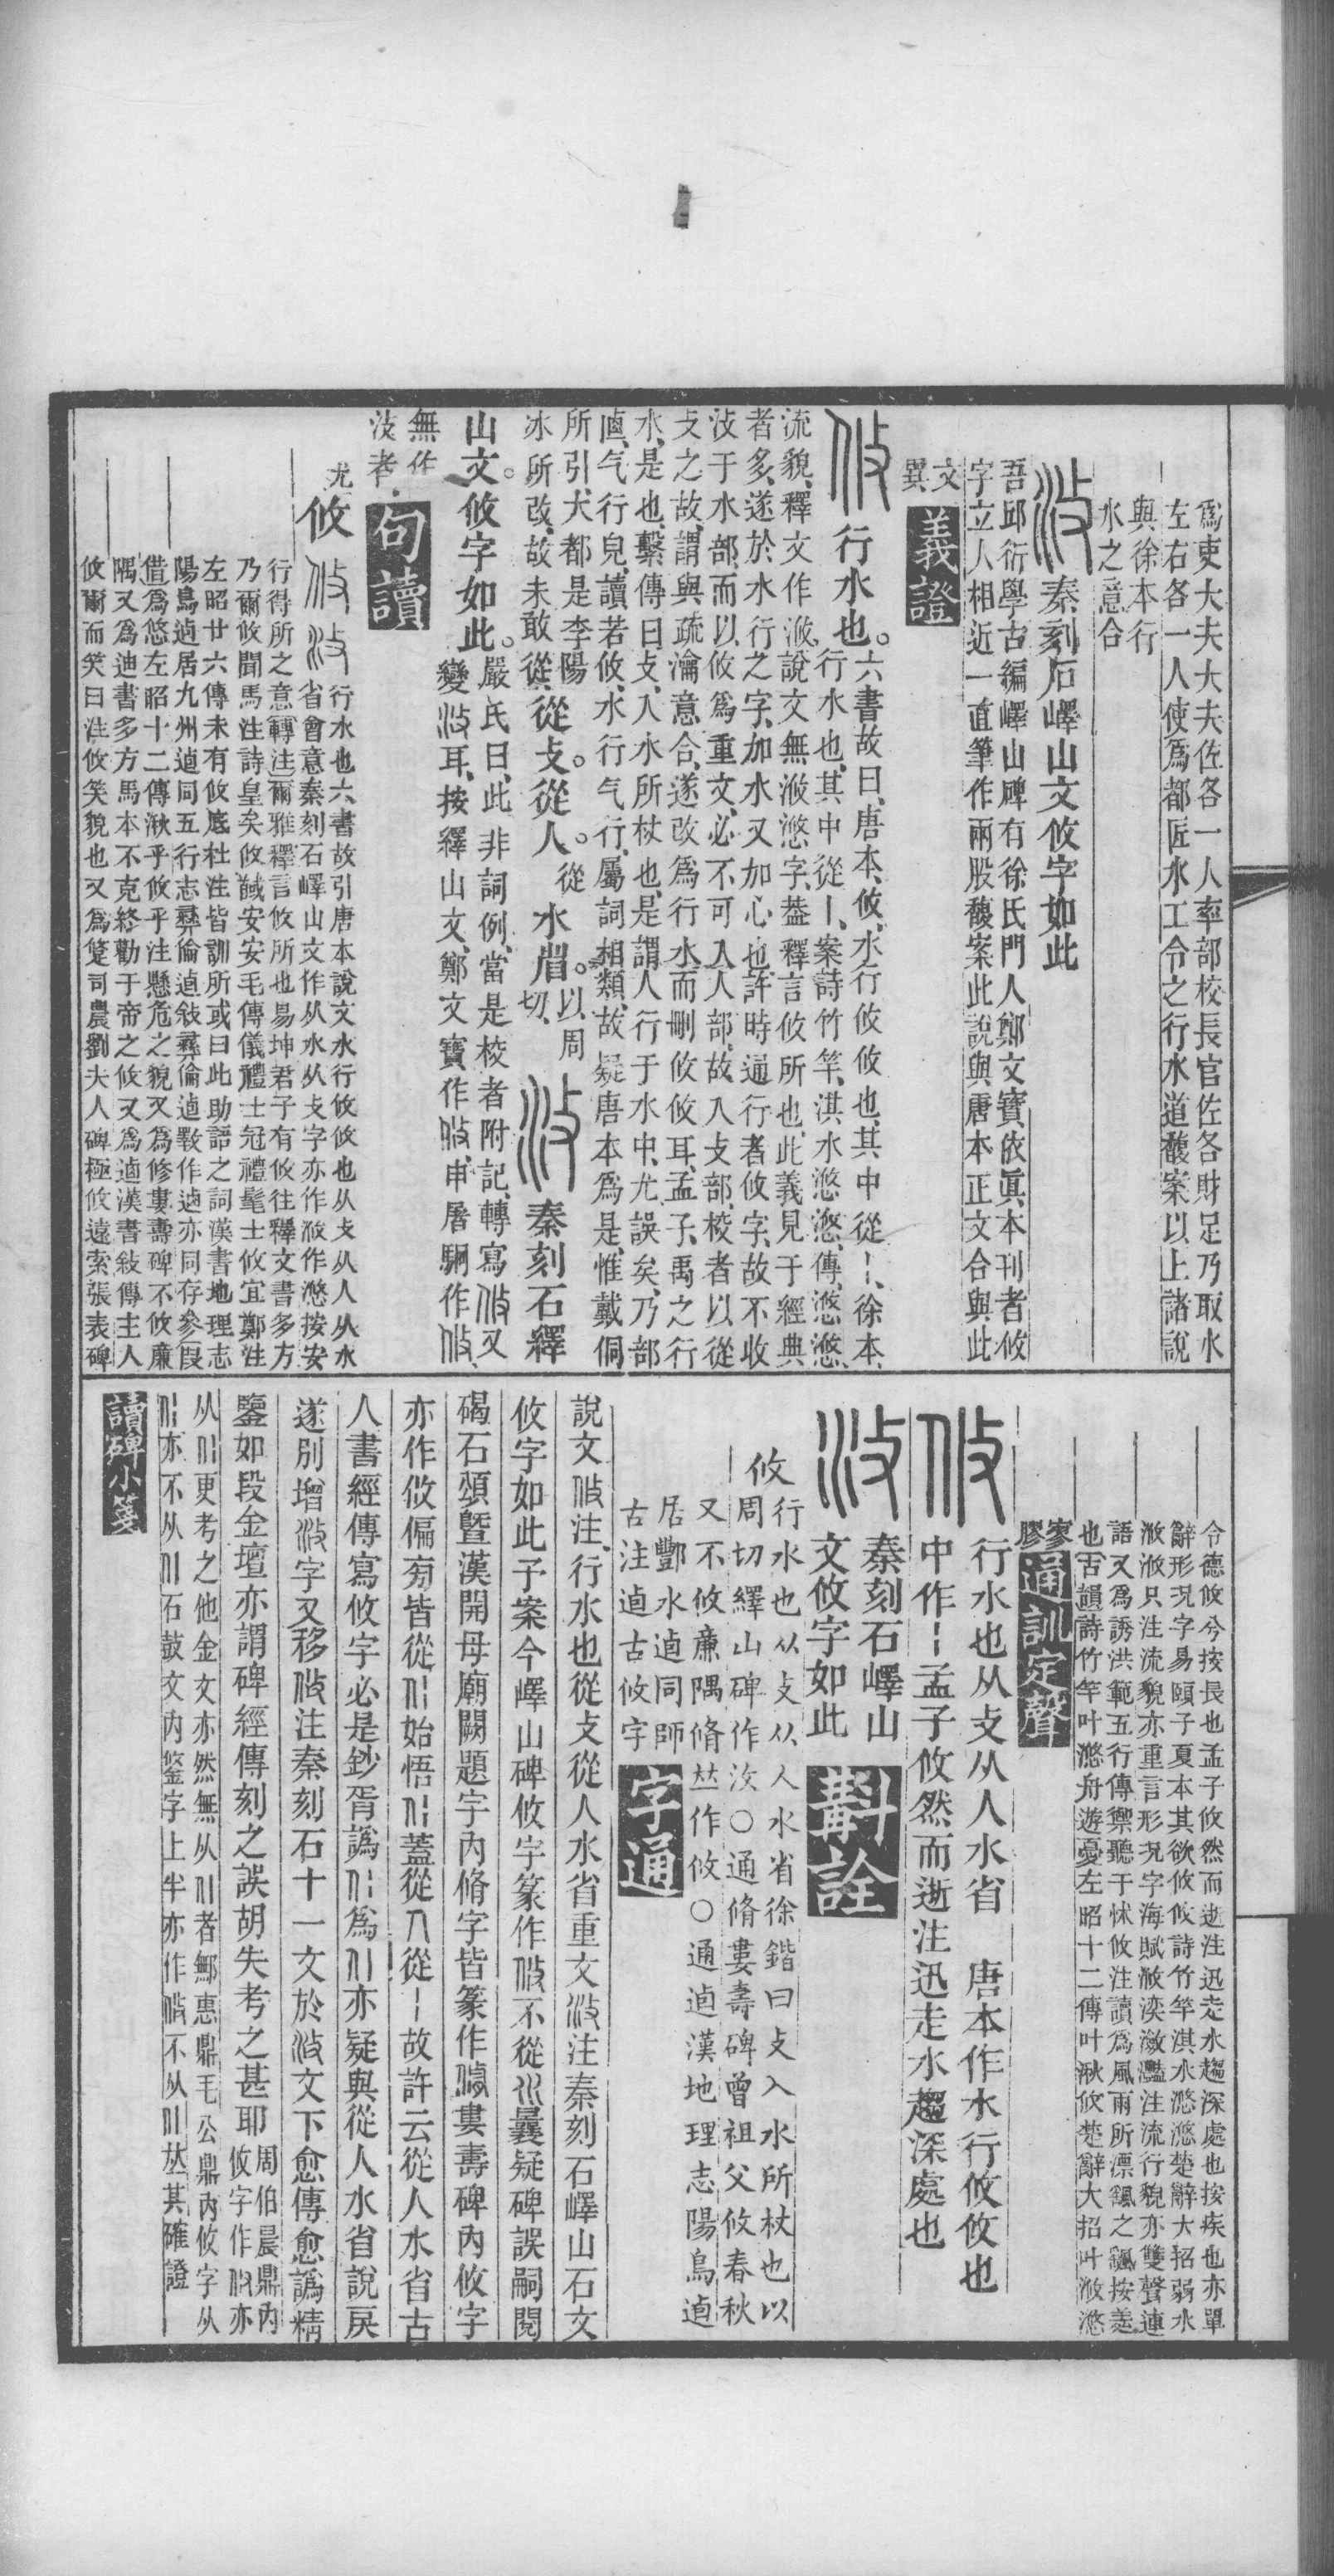 爲吏大夫大夫佐各一人率部校長官佐各財足乃取水
左右各一人使爲都匠水工令之行水道馥案以上諸說
與徐本行
水之意合
秦刻石嶧山文攸字如此
吾邱衍學古編嶧山碑有徐氏門人鄭文寶依眞本刊者攸
字立人相近一直筆作兩股馥案此說與唐本正文合與此
文
異
義證
行水也。
六書故曰、唐本、攸、水行攸攸也、其中從丨、徐本、
行水也、其中從丨、案詩竹竿、淇水滺滺、傳、滺滺、
流貌、釋文作浟、說文無浟滺字、葢釋言攸所也、此義見于經典
者多、遂於水行之字、加水又加心也、許時通行者攸字、故不收
汥于水部、而以攸爲重文、必不可入人部、故入攴部、校者以從
攴之故、謂與疏瀹意合、遂改爲行水、而刪攸攸耳、孟子、禹之行
水、是也、繫傳曰、攴、入水所杖也、是謂人行于水中、尤誤矣、乃部
𠧴、气行皃、讀若攸、水行气行、屬詞相類、故疑唐本爲是、惟戴侗
所引、大都是李陽
冰所改、故未敢從、
從攴。從人。從水省。
以周
切、
秦刻石繹
山文。攸字如此。
嚴氏曰、此非詞例、當是校者附記、轉寫又
變耳、按繹山文、鄭文寶作、申屠駉作、
無作
汥者、
句讀
尤
攸
行水也六書故引唐本說文水行攸攸也从攴从人从水
省會意秦刻石嶧山文作从水从攴字亦作浟作滺按安
行得所之意轉注爾雅釋言攸所也易坤君子有攸往釋文書多方
乃爾攸聞馬注詩皇矣攸馘安安毛傳儀禮士冠禮髦士攸宜鄭注
左昭廿六傳未有攸底杜注皆訓所或曰此助語之詞漢書地理志
陽鳥逌居九州逌同五行志彝倫逌敍彝倫逌斁作逌亦同存參叚
借爲悠左昭十二傳湫乎攸乎注懸危之貌又爲修婁壽碑不攸廉
隅又爲迪書多方馬本不克終勸于帝之攸又爲逌漢書敍傳主人
攸爾而笑曰注攸笑貌也又爲筳司農劉夫人碑極攸遠索張表碑
令德攸兮按長也孟子攸然而逝注迅走水趨深處也按疾也亦單
辭形況字易頤子夏本其欲攸攸詩竹竿淇水滺滺楚辭大招弱水
浟浟只注流貌亦重言形況字海賦浟湙瀲灩注流行貌亦雙聲連
語又爲誘洪範五行傳禦聽于怵攸注讀爲風雨所漂颻之颻按恙
也古韻詩竹竿叶滺舟遊憂左昭十二傳叶湫攸楚辭大招叶浟滺
寥
膠
通訓定聲
行水也从攴从人水省　唐本作水行攸攸也
中作丨孟子攸然而逝注迅走水趨深處也
秦刻石嶧山
文攸字如此
斠詮
攸
行水也从攴从人水省徐鍇曰攴入水所杖也以
周切繹山碑作汥○通脩婁壽碑曾祖父攸春秋
又不攸廉隅脩竝作攸○通逌漢地理志陽鳥逌
居酆水逌同師
古注逌古攸字
字通
說文注行水也從攴從人水省重文注秦刻石嶧山石文
攸字如此予案今嶧山碑攸字篆作不從曩疑碑誤嗣閱
碣石頌曁漢開母廟闕題字內脩字皆篆作婁壽碑內攸字
亦作攸偏旁皆從始悟蓋從人從丨故許云從人水省古
人書經傳寫攸字必是鈔胥譌爲亦疑與從人水省說戾
遂別增字又移注秦刻石十一文於文下愈傳愈譌精
鑒如段金壇亦謂碑經傳刻之誤胡失考之甚耶
周伯晨鼎內
攸字作亦
从更考之他金文亦然無从者鄦惠鼎毛公鼎內攸字从
亦不从石鼓文內鋚字上半亦作不从㽜其確證
讀碑小箋